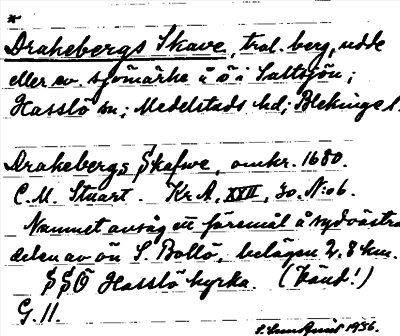 *
Drakebergs Skave, trol. berg, udde
eller ev. sjömärke å ö i Saltsjön;
Hasslö sn; Medelstads hd; Blekinge l.
Drakebergs Skafwe, omkr. 1680.
C. M. Stuart. Kr.A, XVII, 30. N:o6.
Namnet avsåg ett föremål å sydvästra
delen av ön S. Bollö, belägen 2,8 km.
SSÖ Hasslö kyrka. (Känd!)
G. 11.
1936.